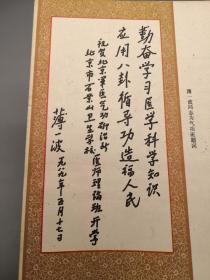 勤奋学习医学科学知识
应用八卦循导功造福人民
祝贺北京军医气功研治所
北京市石景山卫生学校 医师理论班开学
薄一波 一九八九年五月十七日
薄一波同志为气功班题词